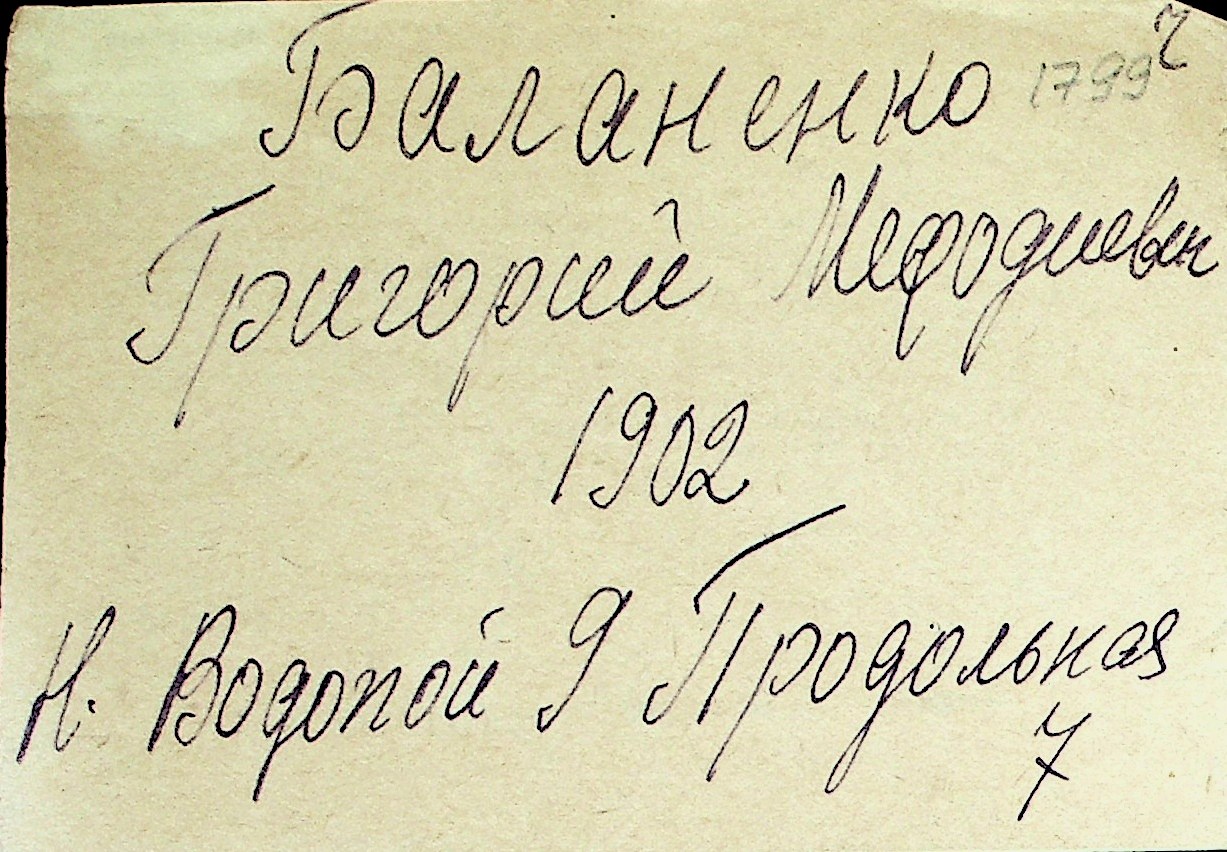 Баланенко 1799 7
Григорий Мефодиевич
1902
Н. Водопой 9 Продольная
7